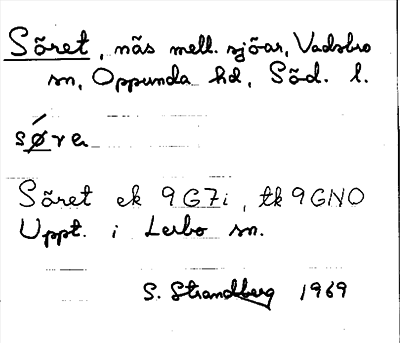 Söret, näs mell. sjöar, Vadsbro
sn, Oppunda hd, Söd. l.
sø´ra
Söret ek 9G7i, tk 9GNO
Uppt. i Lerbo sn.
S. Strandberg 1969